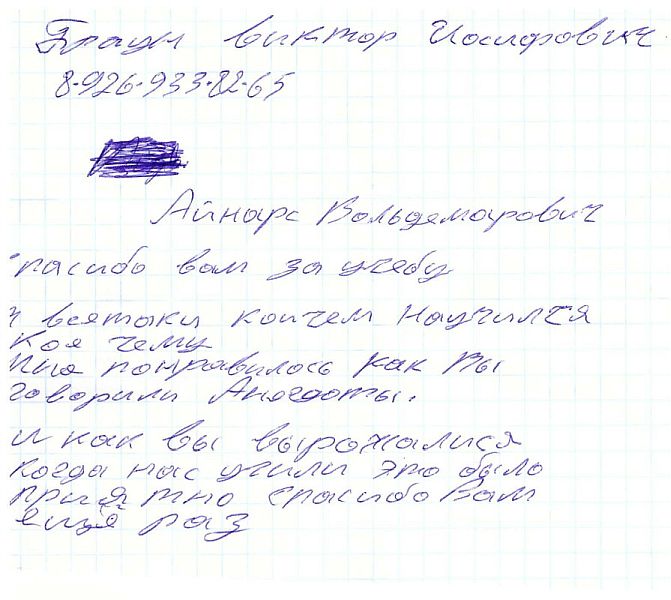 Браун Виктор Иосифович
8-926-933-82-65
Айнарс Вольдемарович
пасибо вам за учебу
я всетаки коичем Научился
кое чему
мне понравилось как Вы
говорили Анегдоты.
и как вы выражалися
когда нас учили это было
приятно спасибо Вам
ещё раз